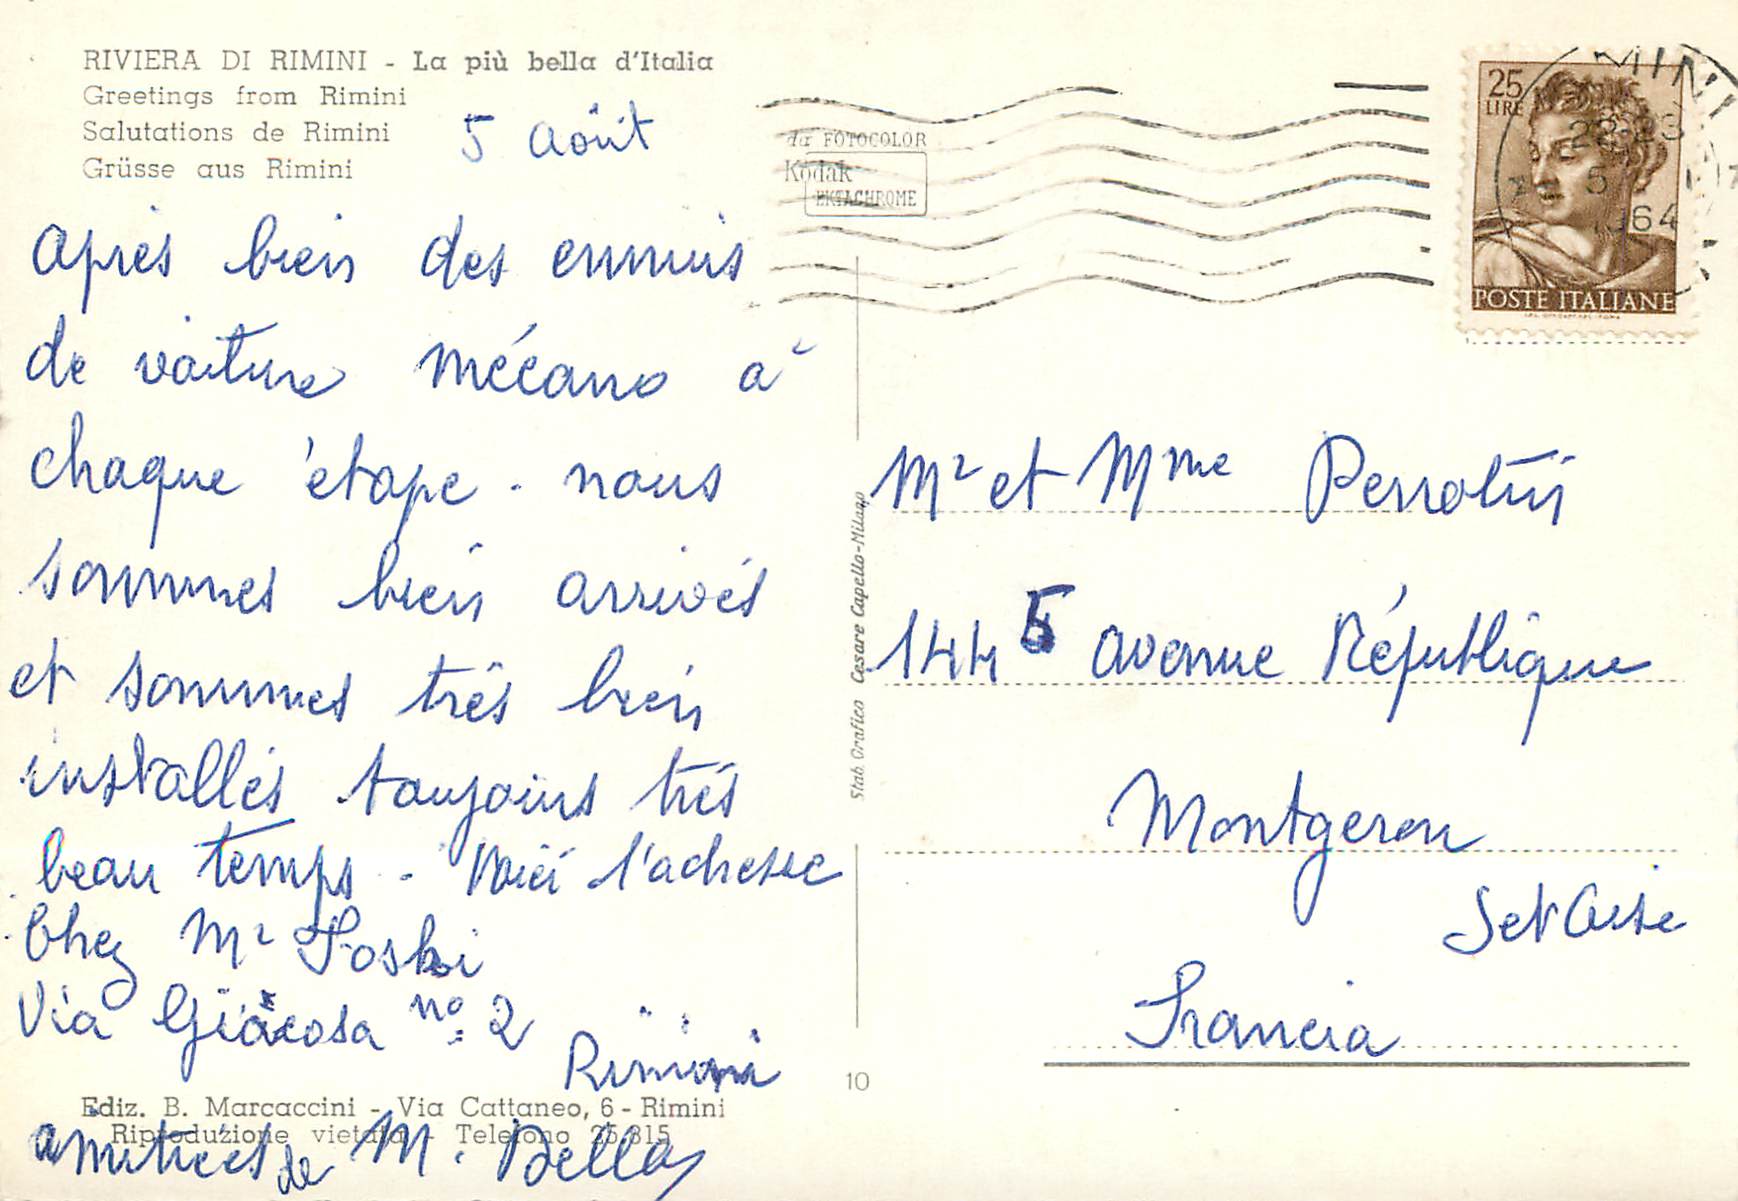 RIVIERA DI RIMINI - La più bella d'Italia
Greetings from Rimini
Salutations de Rimini
Grüsse aus Rimini
5 Août
après bien des ennuis
de voiture mécano à
chaque étape - nous
sommes bien arrivés
et sommes très bien
installés toujours très
beau temps - Voici l'adresse
Chez Mr
Via Giacosa no 2
Rimini
amitiés de M. Bellay
Ediz. B. Marcaccini - Via Cattaneo, 6 - Rimini
Riproduzione vietata - Telefono 25.815
da FOTOCOLOR
Kodak
EKTACHROME
Stab. Grafico Cesare Capello - Milano
10
25
LIRE
POSTE ITALIANE
MINI
22-23
5
1964
Mr et Mme Perrotin
144 5 avenue République
Montgeron
Set Oise
Francia